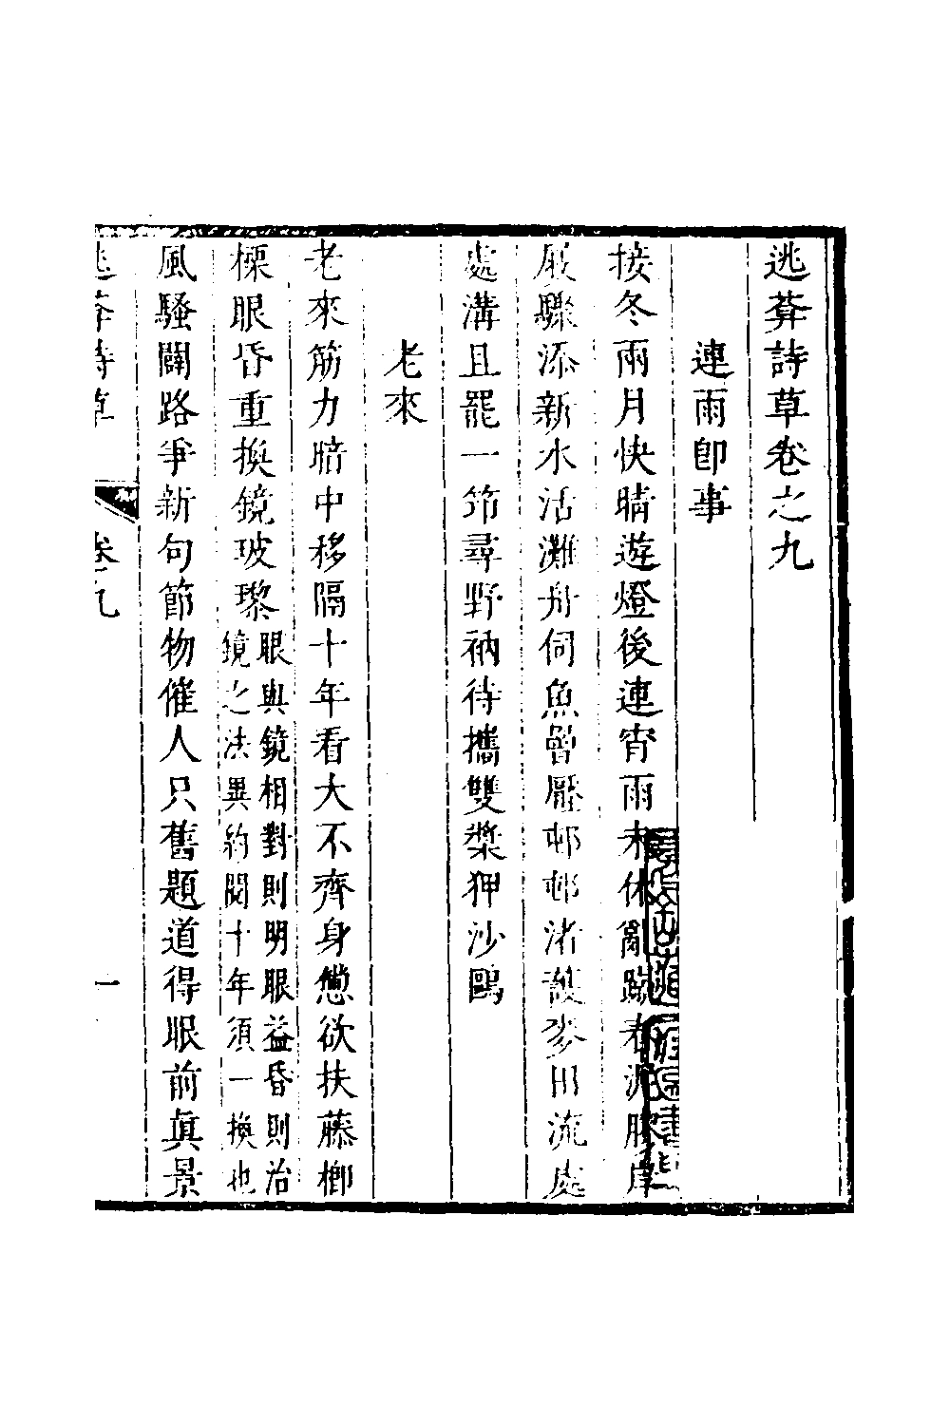 逃葊詩草卷之九
連雨卽事
接冬兩月快晴遊燈後連宵雨未休亂春泥膠岸
屐驟添新水活灘舟伺魚罾壓邨邨渚護麥田流處
處溝且罷一笻尋野衲待攜雙槳狎沙鷗
老來
老來筋力暗中移隔十年看大不齊身憊欲扶藤楖
眼昏重換鏡玻瓈
眼與鏡相對則明眼益昏則治
鏡之法異約閱十年須一換也
風騷闢路爭新句節物催人只舊題道得眼前眞景
逃葊詩草
卷九
一